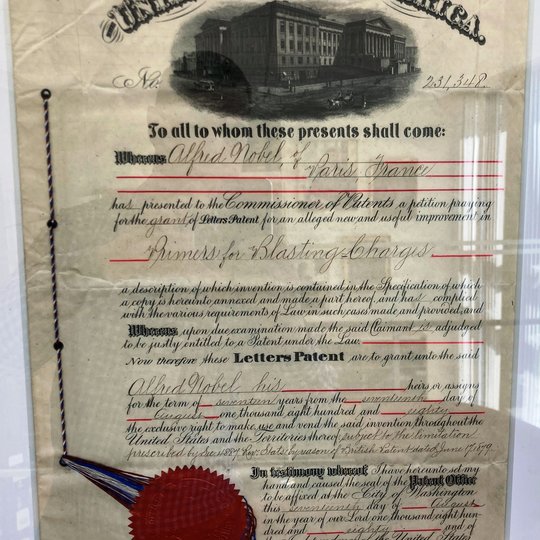 UNITED STATES OF AMERICA.
No. 231,348.
To all to whom these presents shall come:
Whereas Alfred Nobel of
Paris, France
has presented to the Commissioner of Patents a petition praying
for the grant of Letters Patent for an alleged new and useful improvement in
Primers for Blasting-Charges
a description of which invention is contained in the Specification of which
a copy is hereunto annexed and made a part hereof, and has complied
with the various requirements of Law in such cases made and provided, and
Whereas upon due examination made the said Claimant is adjudged
to be justly entitled to a Patent under the Law.
Now therefore these Letters Patent are to grant unto the said
Alfred Nobel his heirs or assigns
for the term of seventeen years from the seventeenth day of
August one thousand eight hundred and eighty
the exclusive right to make use and vend the said invention throughout the
United States and the Territories thereof subject to the limitation
prescribed by Sec. 4887 Rev. Stats by reason of British Patent dated June 17, 1879.
In testimony whereof I have hereunto set my
hand and caused the seal of the Patent Office
to be affixed at the City of Washington
this seventeenth day of August
in the year of our Lord one thousand eight hun-
dred and eighty and of
the United States